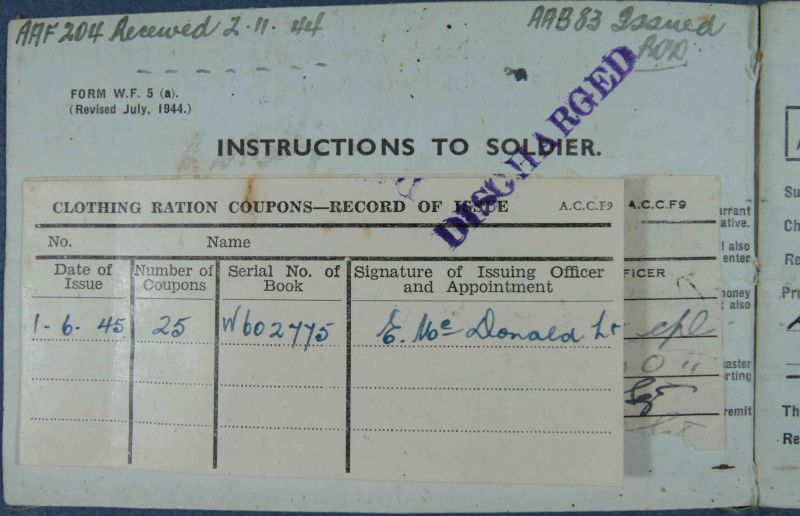 AAF 204 Received 2.11.44
AAB 83 Issued
FORM W.F. 5 (a).
(Revised July, 1944.)
DISCHARGED
INSTRUCTIONS TO SOLDIER.
CLOTHING RATION COUPONS—RECORD OF ISSUE A.C.C.F9
No. Name
Date of Issue Number of Coupons Serial No. of Book Signature of Issuing Officer and Appointment
1-6-45 25 W602775 E. Mc Donald Lt
A.C.C.F9
FICER
cpl
arrant
ative.
l also
enter
money
also
aster
rting
remit
Su
Ch
Re
Pr
Th
Re